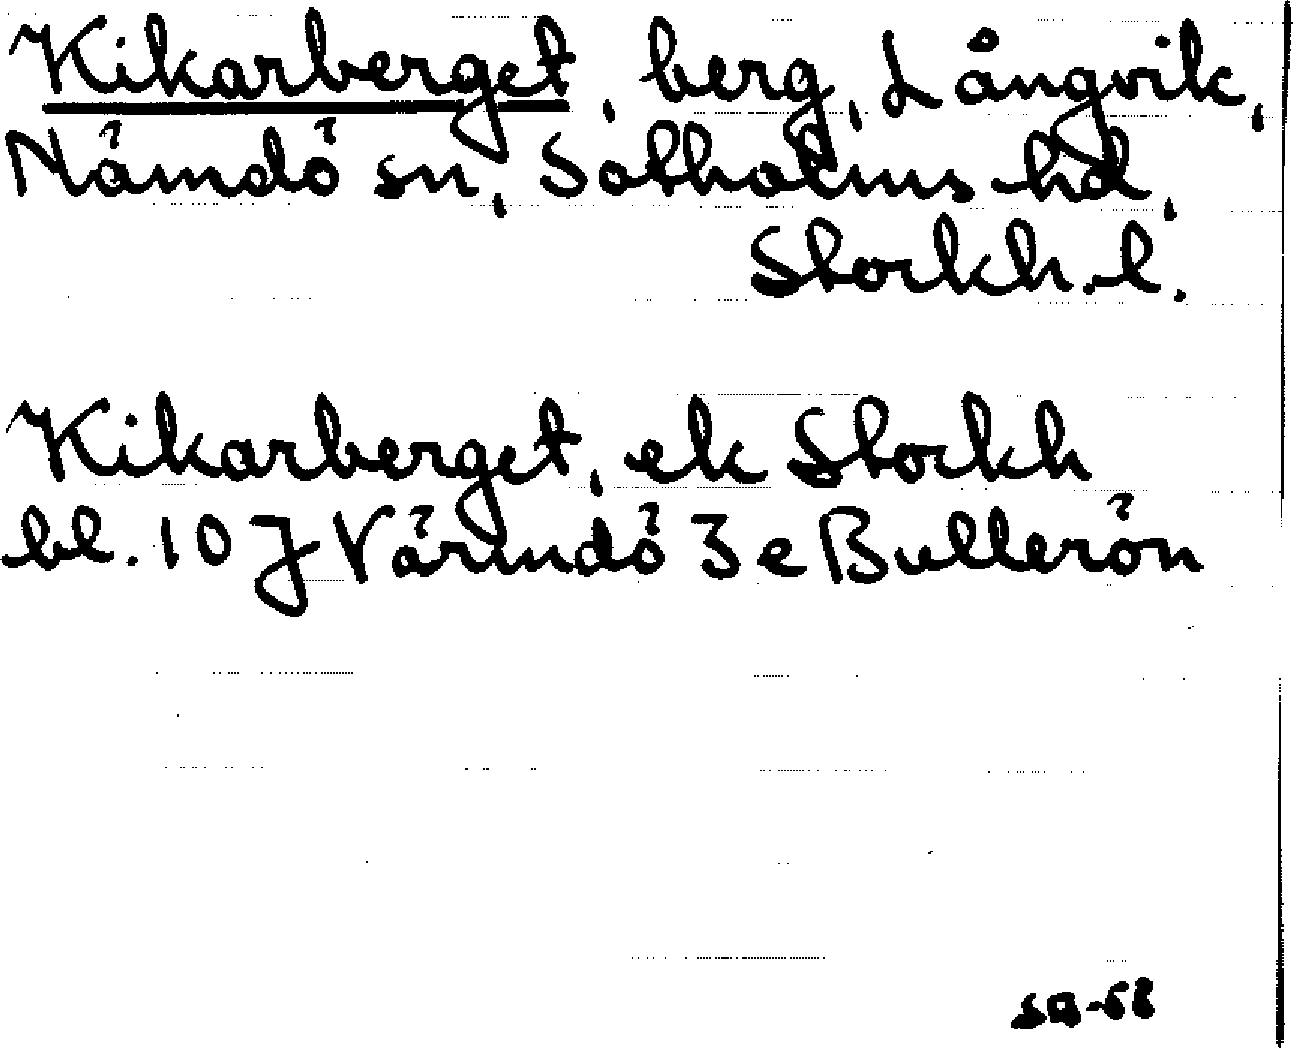 Kikarberget, berg, Långvik,
Nämdö sn, Sotholms hd,
Stockh. l.
Kikarberget, ek Stockh
bl. 10 J Värmdö 3 e Bullerön